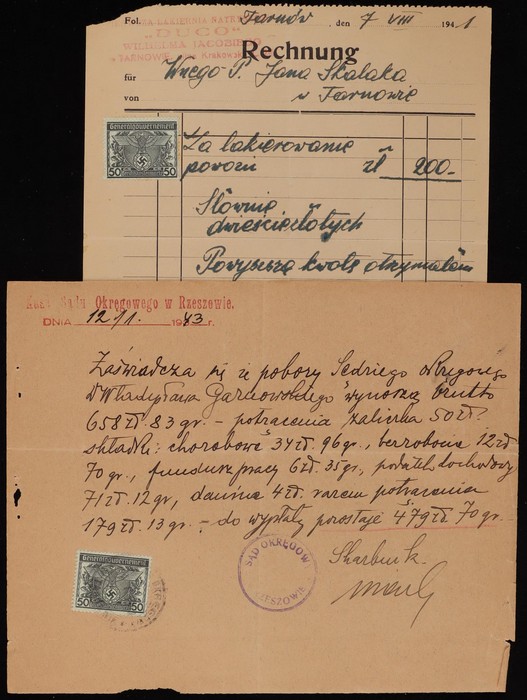 Fol. Tarnów, den 7 VIII 1941
LAKIERNIA NATRYSKOWA
"DUCO"
WILHELMA JACOBIEGO
w TARNOWIE, Krakowska
Rechnung
für Wnego P. Jana Skalaka
von w Tarnowie
Generalgouvernement
50 50
Za lakierowanie
powozu zł 200.-
Słownie
dwieście złotych
Powyższą kwotę otrzymałem
Kasa Sądu Okręgowego w Rzeszowie.
DNIA 12/1. 1943 r.
Zaświadcza się że pobory Sędziego okręgowego
Władysława Garnowskiego wynoszą brutto
658 zł. 83 gr. – potrącenia zaliczka 50 zł.
składki: chorobowe 34 zł. 96 gr., bezrobocie 12 zł.
70 gr., fundusz pracy 6 zł. 35 gr., podatek dochodowy
71 zł. 12 gr., danina 4 zł. razem potrącenia
179 zł. 13 gr. – do wypłaty pozostaje 479 zł. 70 gr.
Skarbnik
SĄD OKRĘGOWY
RZESZOWIE
Generalgouvernement
50 50